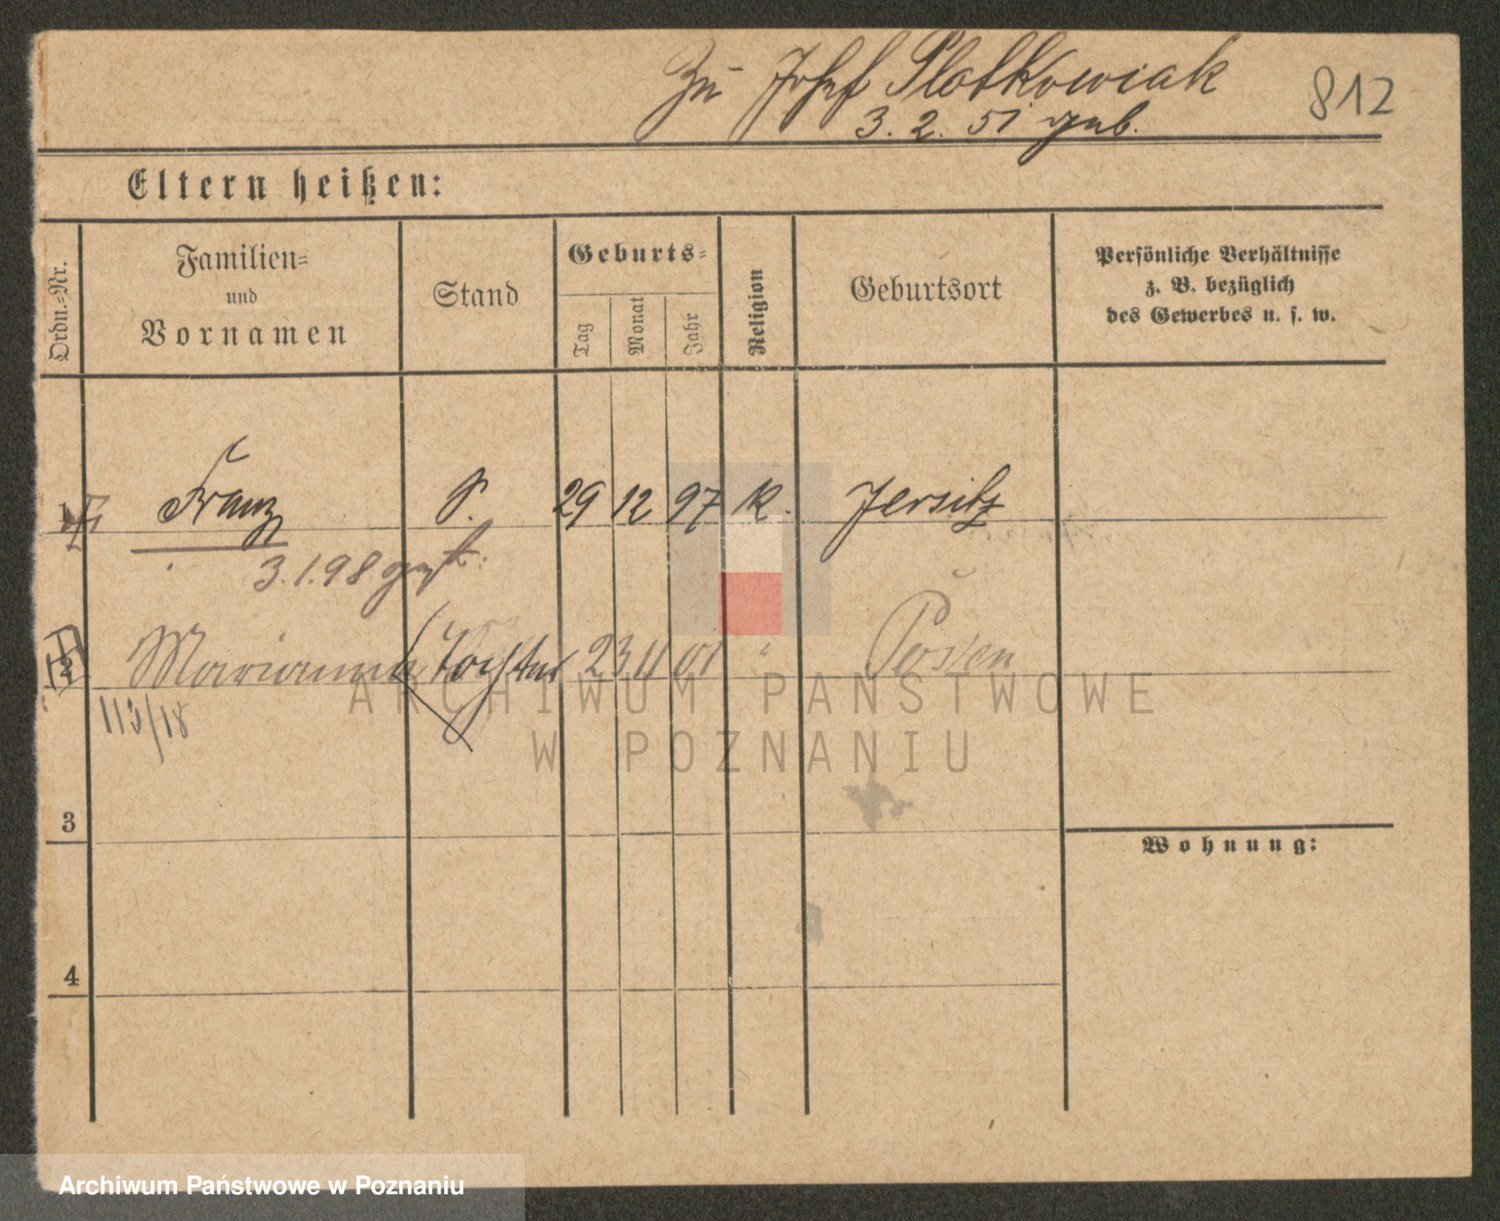 Zu Josef Slotkowiak
812
3. 2. 51 geb.
Eltern heißen:
Ordn.=Nr.
Familien=
und
Vornamen
Stand
Geburts=
Tag
Monat
Jahr
Religion
Geburtsort
Persönliche Verhältnisse
z. B. bezüglich
des Gewerbes u. s. w.
1 Franz S. 29 12 97 k. Jersitz
3.1.98 gest.
2 Marianna Tochter 23 11 01 " Posen
113/18
3
Wohnung:
4
ARCHIWUM PAŃSTWOWE
W POZNANIU
Archiwum Państwowe w Poznaniu